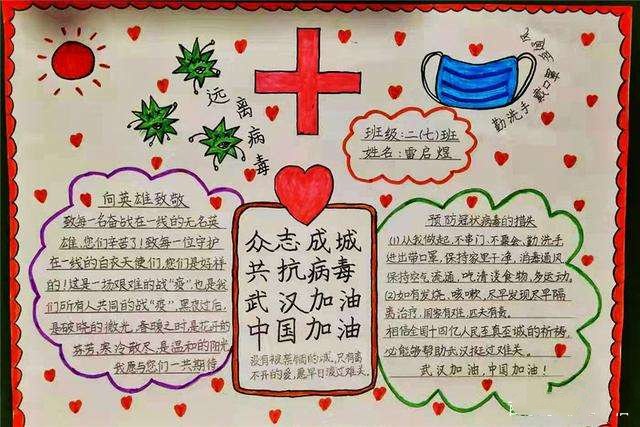 远离病毒
风过多
戴口罩
勤洗手
班级:二(七)班
姓名:雷启煜
向英雄致敬
致每一名奋战在一线的无名英
雄,您们辛苦了!致每一位守护
在一线的白衣天使们,您们是好样
的!这是一场艰难的战“疫”也是我
们所有人共同的战“疫”黑夜过后,
是破晓的微光,春暖之时是花开的
芬芳,寒冷散尽,是温和的阳光
我愿与您们一共期待
众志成城
共抗病毒
武汉加油
中国加油
没有被禁锢的城,只有离
不开的爱,愿早日渡过难关。
预防冠状病毒的措失
(1)从我做起,不串门,不聚会,勤洗手
进出带口罩,保持家里干净,消毒通风
保持空气流涌,吃清谈食物,多运动。
(2)如有发烧,咳嗽,尽早发现尽早隔
离治疗,国家有难,匹夫有责。
相信全国十四亿人民至真至诚的祈祷,
必能够帮助武汉挺过难关。
武汉加油,中国加油!